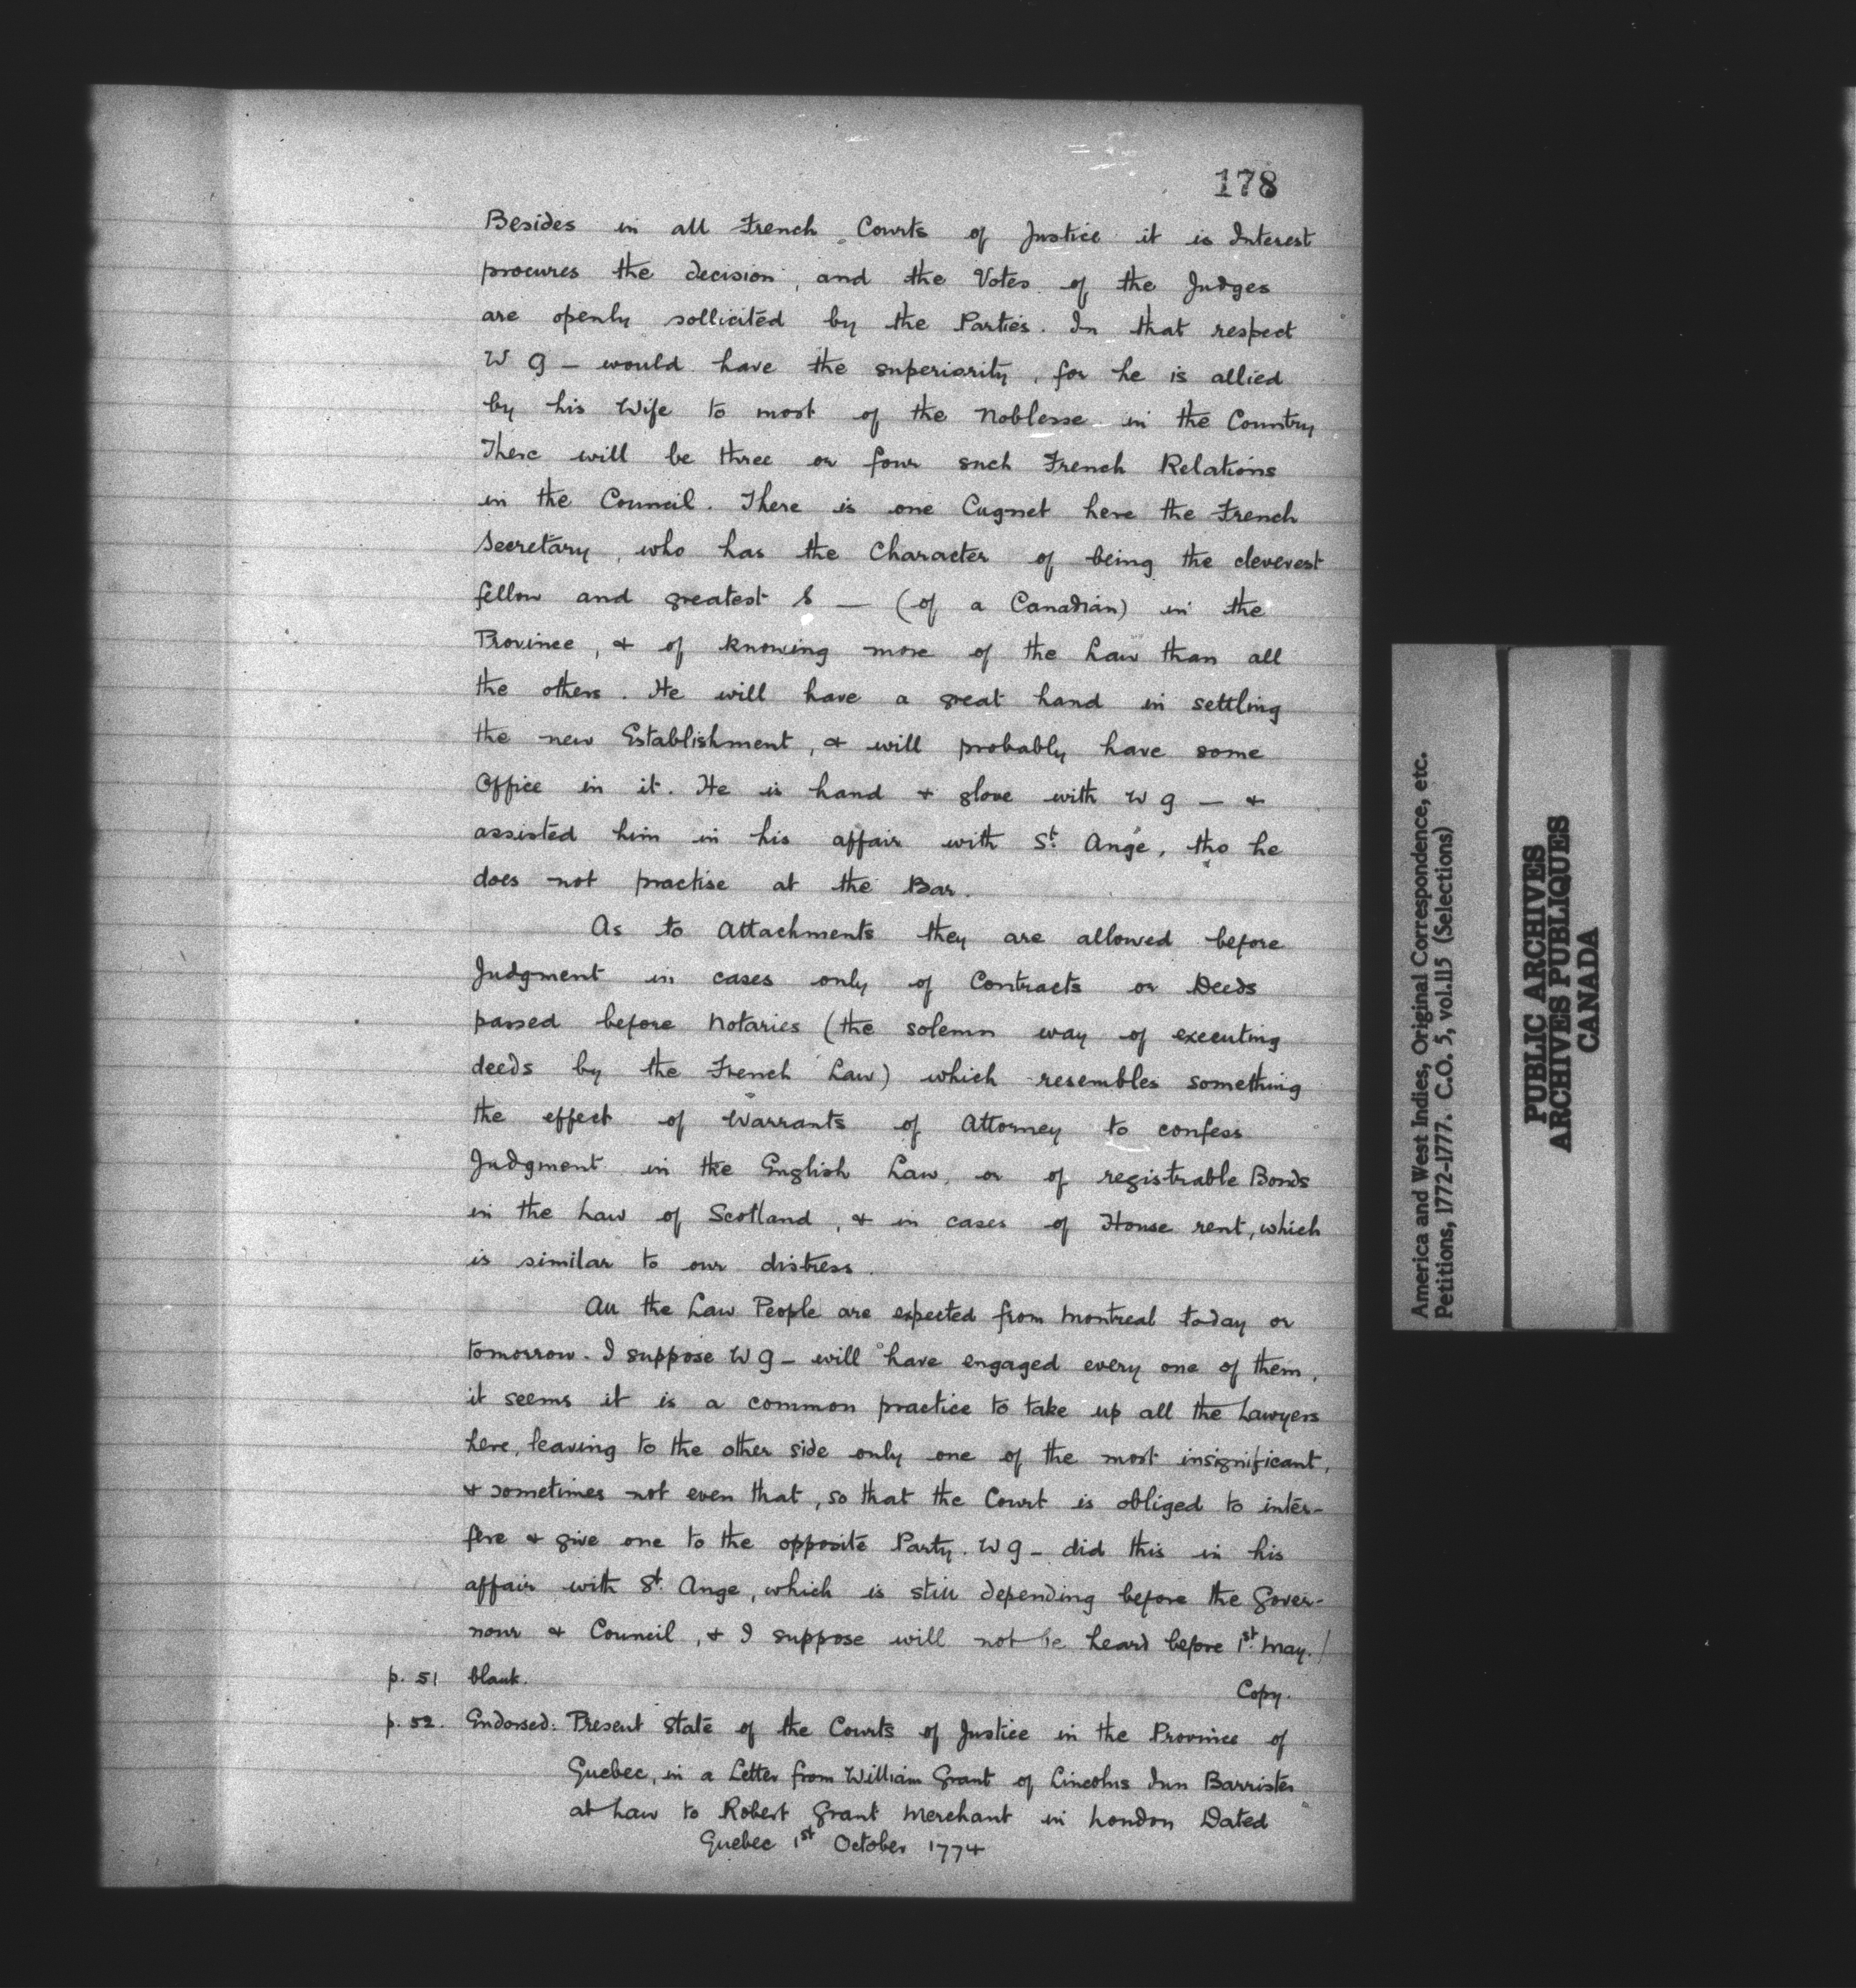 178
Besides in all French Courts of Justice it is Interest
procures the decision, and the Votes of the Judges
are openly sollicited by the Parties. In that respect
W G — would have the superiority, for he is allied
by his Wife to most of the Noblesse in the Country
There will be three or four such French Relations
in the Council. There is one Cugnet here the French
Secretary, who has the Character of being the cleverest
fellow and greatest S — (of a Canadian) in the
Province, & of knowing more of the Law than all
the others. He will have a great hand in settling
the new Establishment, & will probably have some
Office in it. He is hand & glove with W G — &
assisted him in his affair with St. Ange, tho he
does not practise at the Bar.
As to Attachments they are allowed before
Judgment in cases only of Contracts or Deeds
passed before Notaries (the solemn way of executing
deeds by the French Law) which resembles something
the effect of Warrants of Attorney to confess
Judgment in the English Law, or of registrable Bonds
in the Law of Scotland, & in cases of House rent, which
is similar to our distress.
All the Law People are expected from Montreal today or
tomorrow. I suppose W G — will have engaged every one of them,
it seems it is a common practice to take up all the Lawyers
here, leaving to the other side only one of the most insignificant,
& sometimes not even that, so that the Court is obliged to inter-
fere & give one to the opposite Party. W G — did this in his
affair with St. Ange, which is still depending before the Gover-
nour & Council, & I suppose will not be heard before 1st. May./
p. 51 blank.
Copy.
p. 52. Endorsed: Present State of the Courts of Justice in the Province of
Quebec, in a Letter from William Grant of Lincolns Inn Barrister
at Law to Robert Grant Merchant in London Dated
Quebec 1st October 1774
America and West Indies, Original Correspondence, etc.
Petitions, 1772-1777. C.O. 5, vol.115 (Selections)
PUBLIC ARCHIVES
ARCHIVES PUBLIQUES
CANADA